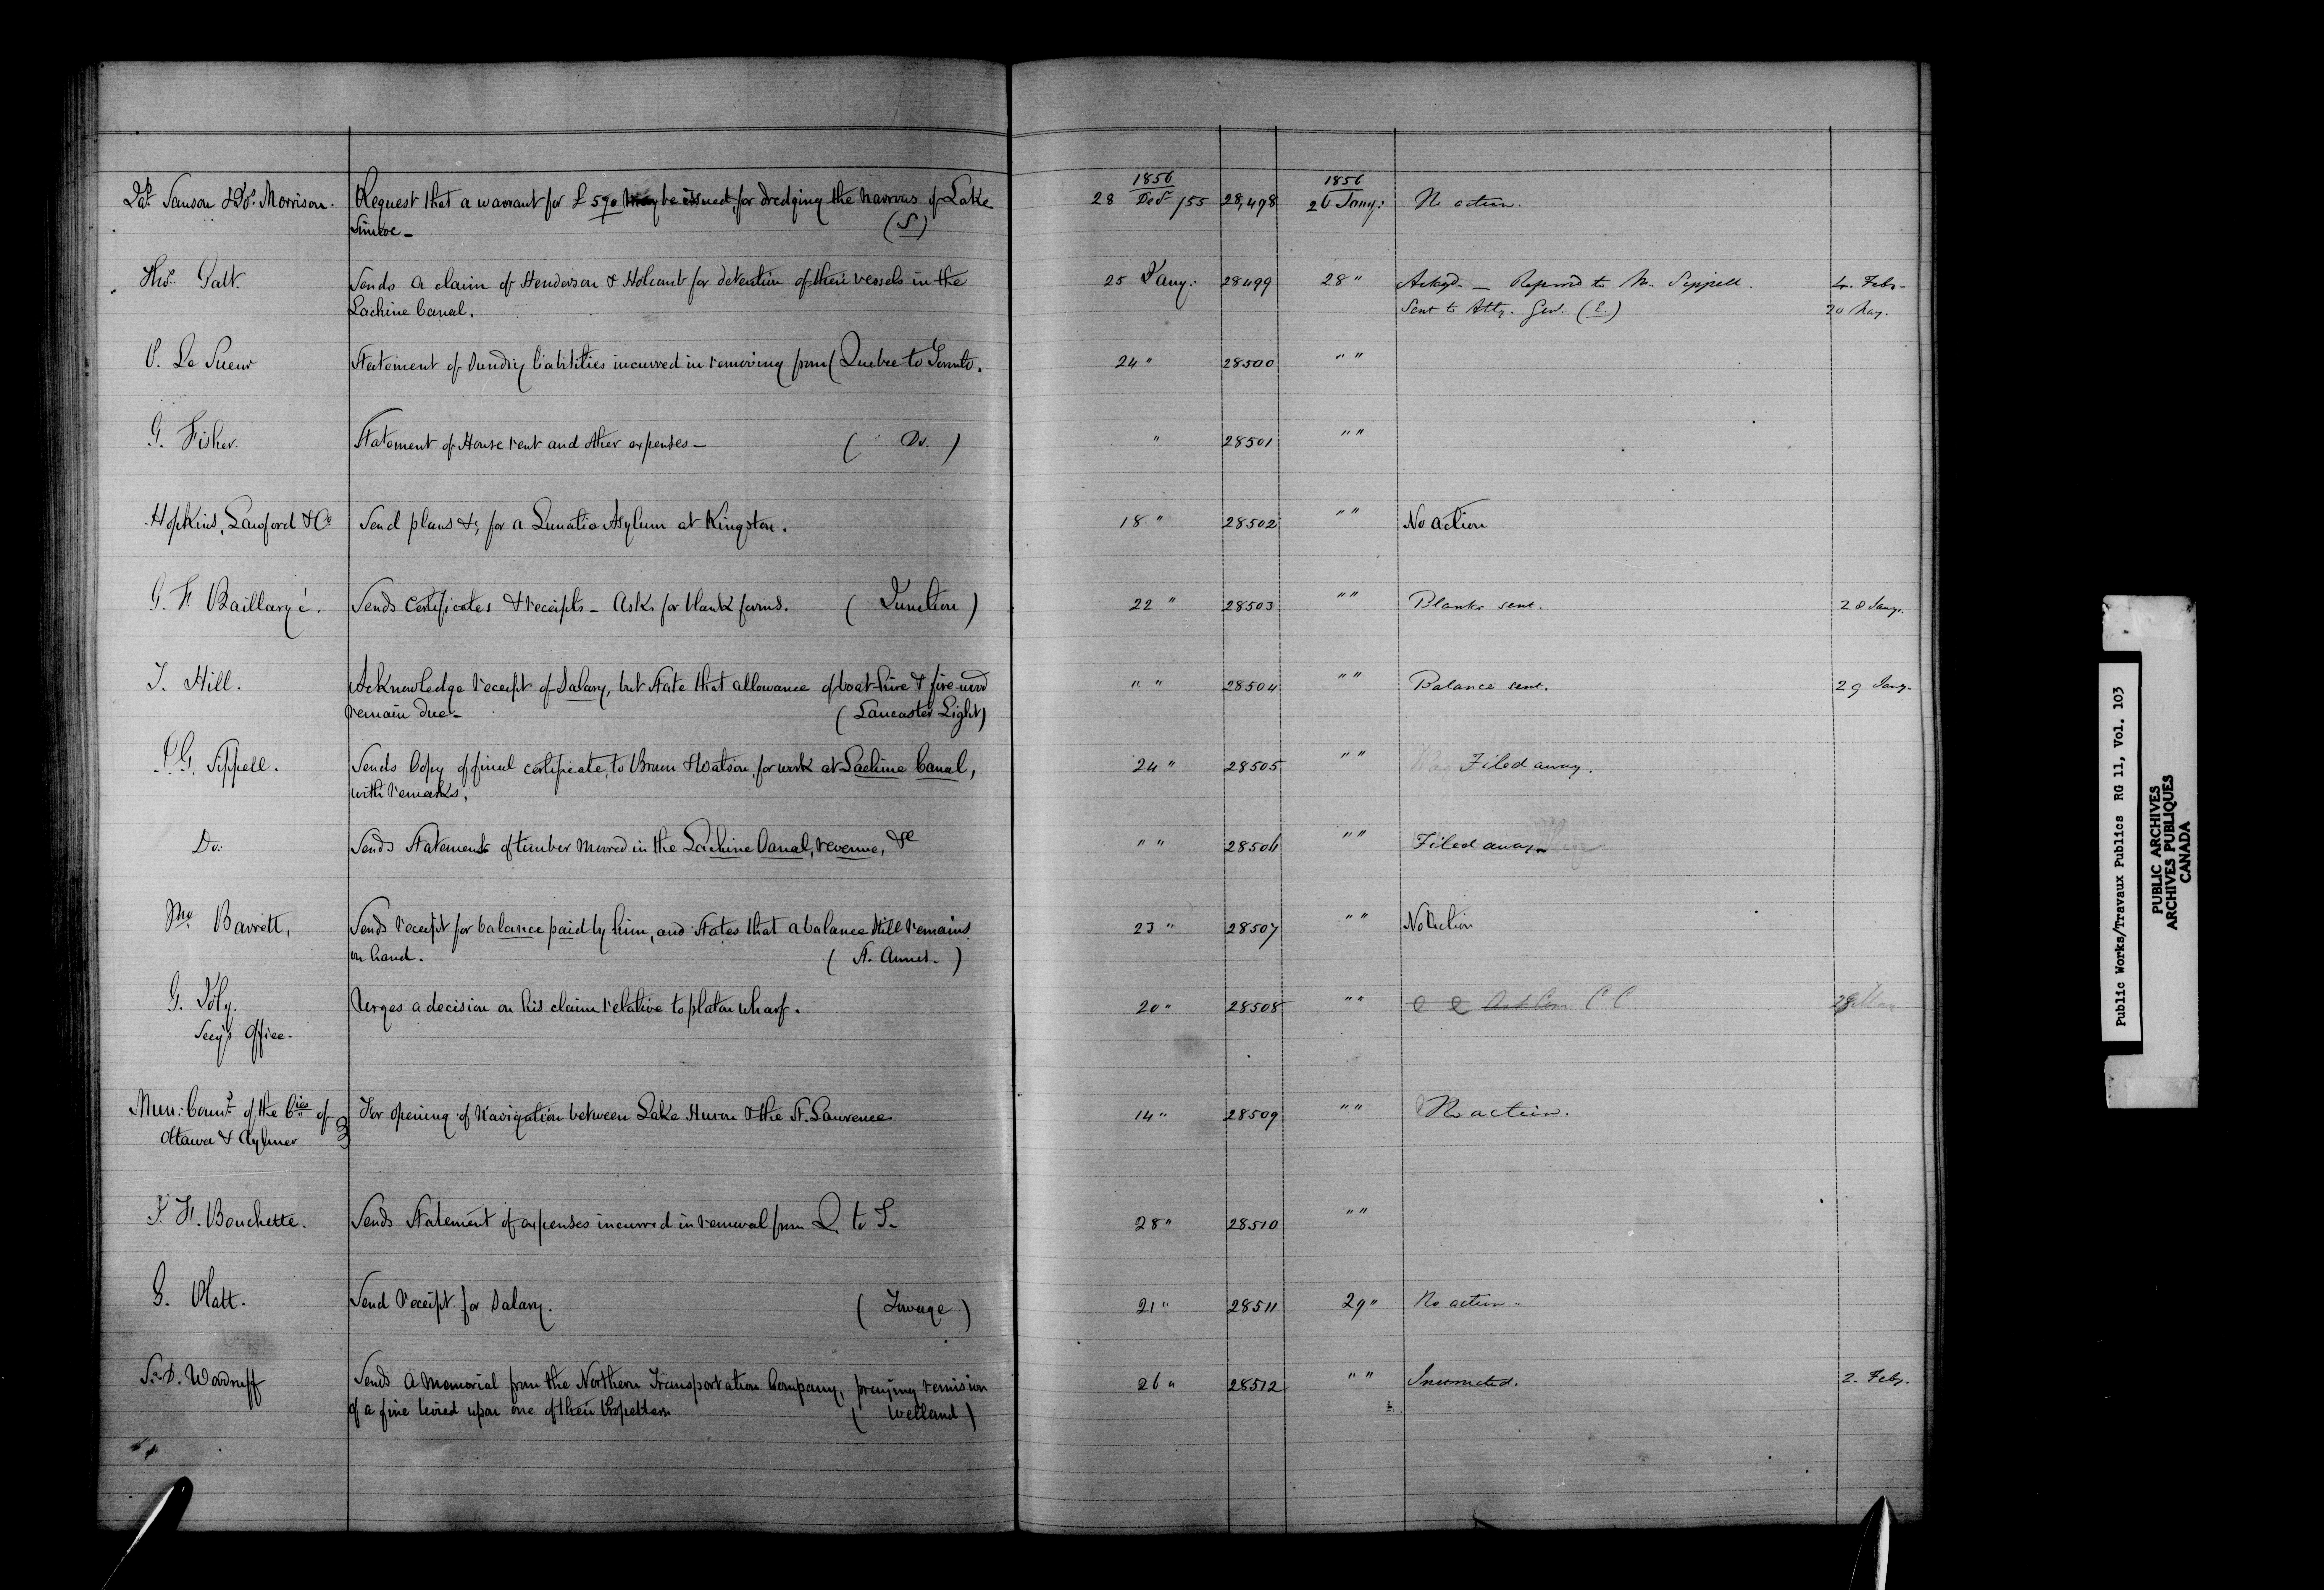 1856 1856
Sanson & Morrison. Request that a warrant for £ 590 may be issued, for dredging the Narrows of Lake 28 Decr /55 28,498 26 Jany: No action.
Simcoe - (S)
Thos. Galt. Sends a claim of Henderson & Holcomb for detention of their vessels in the 25 Jany: 28499 28 " Ackgd. - Referred to Mr. Sippell. 4. Feby.
Lachine Canal. Sent to Atty. Genl. (E.) 20 May.
P. Le Sueur Statement of sundry liabilities incurred in removing from Quebec to Toronto. 24 " 28500 " "
G. Fisher. Statement of House rent and other expenses - ( Do. ) " 28501 " "
Hopkins, Lawford & Co Send plans &c, for a Lunatic Asylum at Kingston. 18 " 28502 " " No action
G. F. Baillargé. Sends Certificates & receipts - Asks for blank forms. ( Junction ) 22 " 28503 " " Blanks sent. 28 Jany.
J. Hill. Acknowledge receipt of Salary, but state that allowance of boat-hire & fire-wood " " 28504 " " Balance sent. 29 Jany.
remain due - ( Lancaster Light)
G. Sippell. Sends Copy of final certificate, to Brown & Watson, for work at Lachine Canal, 24 " 28505 " " Filed away.
with remarks.
Do: Sends Statement of timber moved in the Lachine Canal, revenue, &c " " 28506 " " Filed away.
Barrett, Sends receipt for balance paid by him, and states that a balance still remains 23 " 28507 " " No Action
on hand. ( St. Annes - )
G. Joly. Urges a decision on his claim relative to platon wharf. 20 " 28508 " " C C 28
Secy's Office.
Mun: Counl of the Cies of For opening of Navigation between Lake Huron & the St. Lawrence 14 " 28509 " " No action.
Ottawa & Aylmer
J. F. Bouchette. Sends Statement of expenses incurred in removal from Q. to T. 28 " 28510 " "
G. Platt. Send receipt for Salary. ( Towage ) 21 " 28511 29 " No action.
S. D. Woodruff Sends a Memorial from the Northern Transportation Company, praying remision 26 " 28512 " " Instructed. 2. Feby.
of a fine levied upon one of their Propellers ( Welland )
Public Works/Travaux Publics RG 11, Vol. 103
PUBLIC ARCHIVES
ARCHIVES PUBLIQUES
CANADA